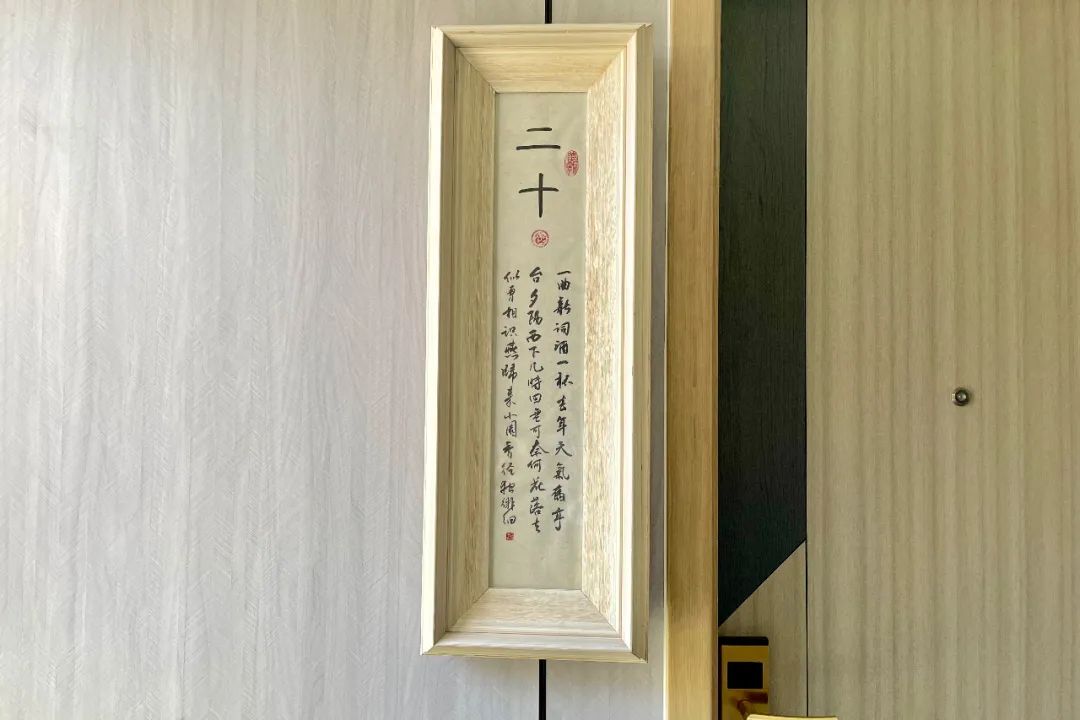 二十
一曲新词酒一杯去年天氣舊亭
台夕陽西下几時回無可奈何花落去
似曾相识燕歸来小園香径独徘徊